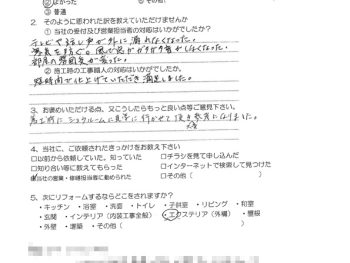 ②よかった ②その他(
③ 普通
2. そのように思われた訳を教えていただけませんか
① 当社の受付及び営業担当者の対応はいかがでしたか?
テレビや話し声が外に漏れなくなった。
寒気を防ぐ。風で窓がガタガタ音がしなくなった。
部屋の雰囲気が変った。
② 施工時の工事職人の対応はいかがでしたか。
短時間で仕上げていただき満足しました。
3、お褒めいただける点、又こうしたらもっと良い点等ご意見下さい。
施工前にショールームに見学に行かせて頂き参考になりました。
4、当社に、ご依頼されたきっかけをお教え下さい
□以前から依頼していた。知っていた □チラシを見て申し込んだ
□知り合い等に教えてもらった □インターネットで検索して見つけた
当社の営業・修繕担当者に勧められた □その他(
5、次にリフォームするならどこをされますか?
・キッチン ・浴室 ・洗面 ・トイレ ・子供室 ・リビング ・和室
・玄関 ・インテリア(内装工事全般) ・エクステリア(外構) ・屋根
・外壁 ・増築 ・その他(